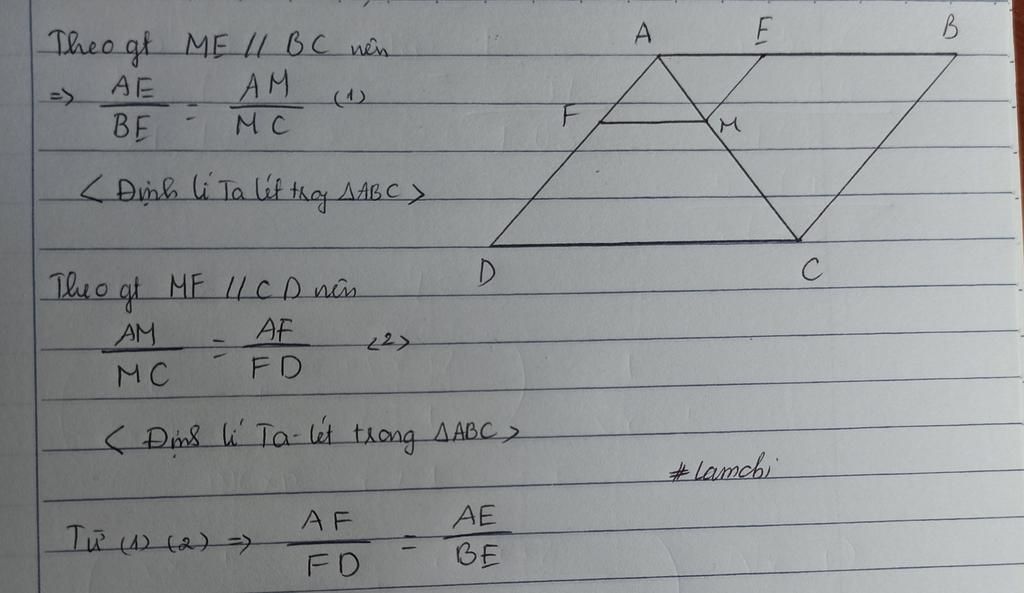 Theo gt ME // BC nên
=> AE/BE = AM/MC (1)
< Định lí Ta lét trog ΔABC >
Theo gt MF // CD nên
AM/MC = AF/FD <2>
< Định lí Ta-lét trong ΔABC >
#lamchi
Từ (1) (2) => AF/FD = AE/BE
A E B
F M
D C